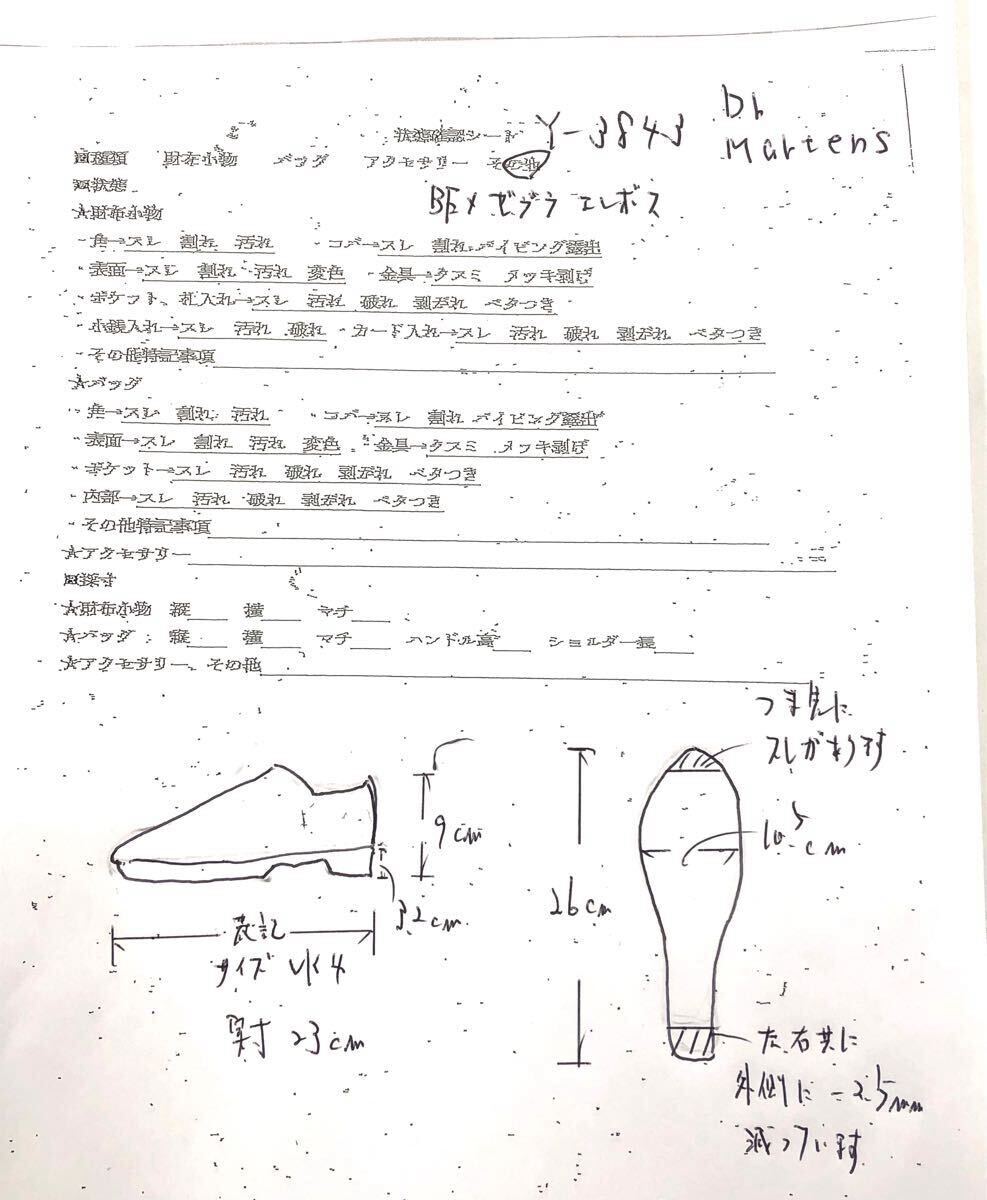 状態確認シート Y-3843 Dr Martens
■種類 財布小物 バッグ アクセサリー その他
■状態 BEX ゼブラ エンボス
★財布小物
・角→スレ 割れ 汚れ ・コバ→スレ 割れ パイピング露出
・表面→スレ 割れ 汚れ 変色 ・金具→クスミ メッキ剥げ
・ポケット、札入れ→スレ 汚れ 破れ 剥がれ ベタつき
・小銭入れ→スレ 汚れ 破れ ・カード入れ→スレ 汚れ 破れ 剥がれ ベタつき
・その他特記事項
★バッグ
・角→スレ 割れ 汚れ ・コバ→スレ 割れ パイピング露出
・表面→スレ 割れ 汚れ 変色 ・金具→クスミ メッキ剥げ
・ポケット→スレ 汚れ 破れ 剥がれ ベタつき
・内部→スレ 汚れ 破れ 剥がれ ベタつき
・その他特記事項
★アクセサリー
■採寸
★財布小物 縦 横 マチ
★バッグ 縦 横 マチ ハンドル高 ショルダー長
★アクセサリー、その他
つま先に
スレがあります
9cm
10.5cm
3.2cm
26cm
表記
サイズ UK4
実寸 23cm
左右共に
外側に-2.5mm
減っています